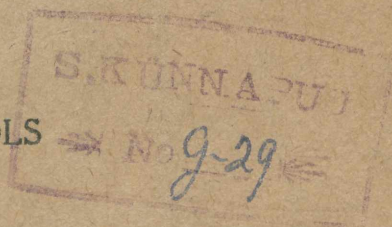 S. KUNNAPUU
LS No g-29